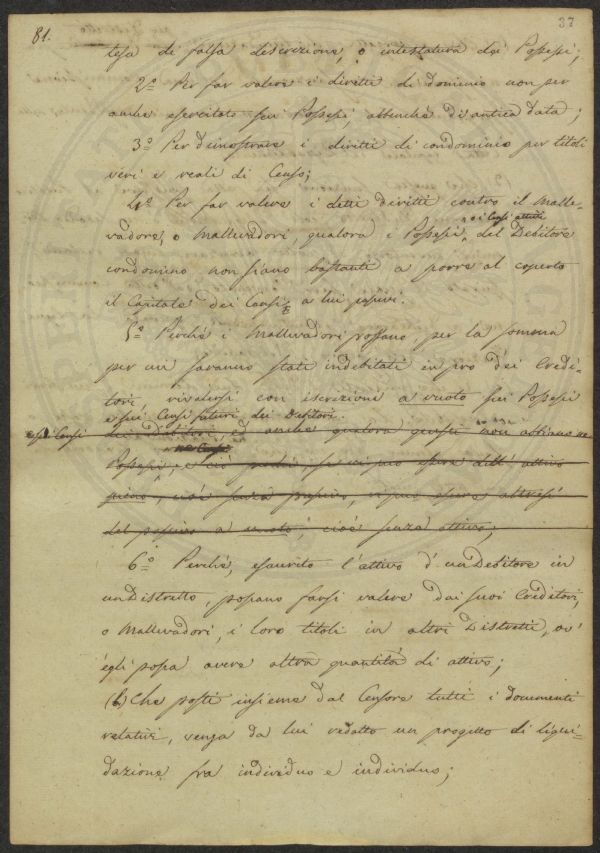 81.
37
tesa di falsa descrizione, o intestatura dei Possessi;
2.º Per far valere i diritti di dominio non per
anche esercitato sui Possessi, abbenchè di antica data;
3.º Per dimostrare i diritti di condominio per titoli
veri e reali di Censo;
4.º Per far valere i detti diritti contro il Malle-
vadore, o Mallevadori, qualora i Possessi, o i Censi attivi del Debitore
condomino non siano bastanti a porre al coperto
il Capitale dei Censi a lui passivi.
5.º Perchè i Mallevadori possano, per la somma
per cui saranno stati indebitati in pro dei Credi-
tori, rivalersi con iscrizione a vuoto sui Possessi
e sui Censi futuri dei Debitori.
dei Debitori, ed anche qualora questi non abbiano ne
ne Censi
Possessi, e ciò
pieno, cioè senza passivo,
del passivo a vuoto, cioè senza attivo;
6.º Perchè, esaurito l'attivo d'un Debitore in
un Distretto, possano farsi valere dai suoi Creditori,
o Mallevadori, i loro titoli in altri Distretti, ov'
egli possa avere altra quantità di attivo;
(b) Che posti insieme dal Censore tutti i documenti
relativi, venga da lui redatto un progetto di liqui-
dazione fra individuo e individuo;